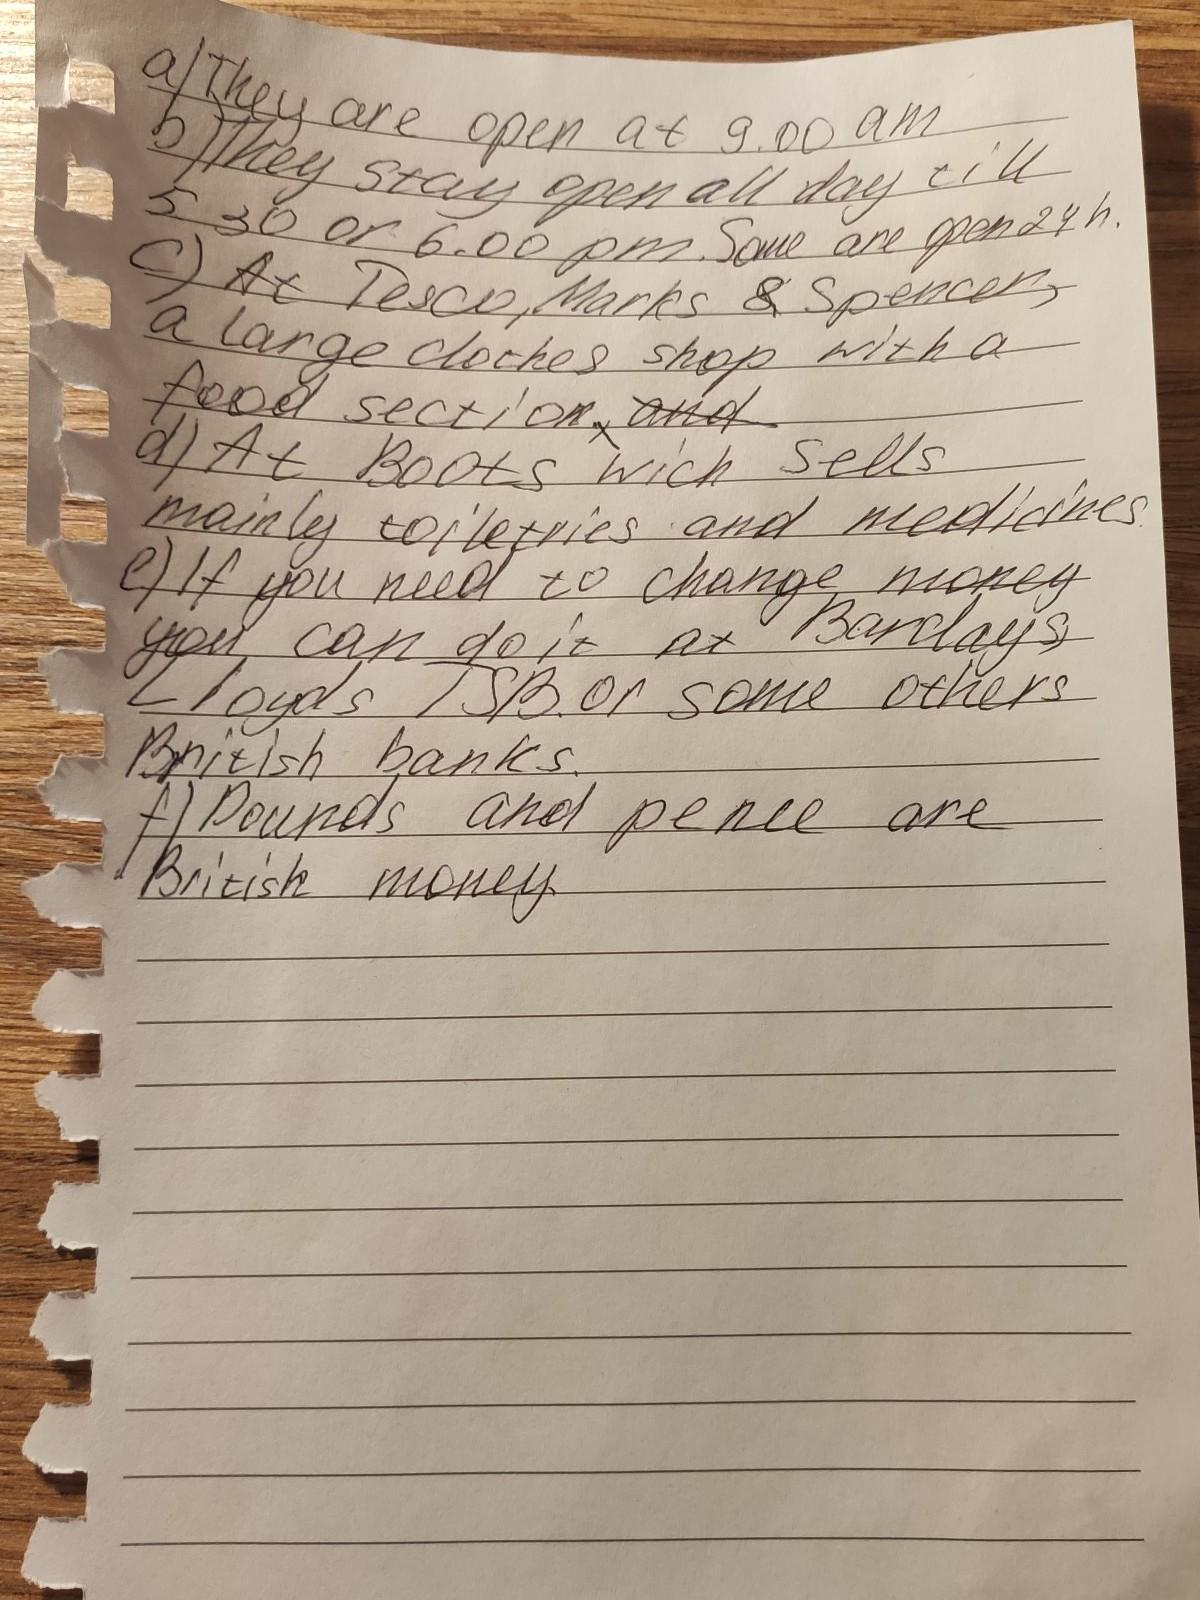 a) They are open at 9.00 am
b) They stay open all day till
5 30 or 6.00 pm. Some are open 24 h.
c) At Tesco, Marks & Spencer,
a large clothes shop with a
food section, and
d) At Boots wich sells
mainly toiletries and medicines.
e) If you need to change money
you can do it at Barclays,
Lloyds TSB or some others
British banks.
f) Pounds and pence are
British money.